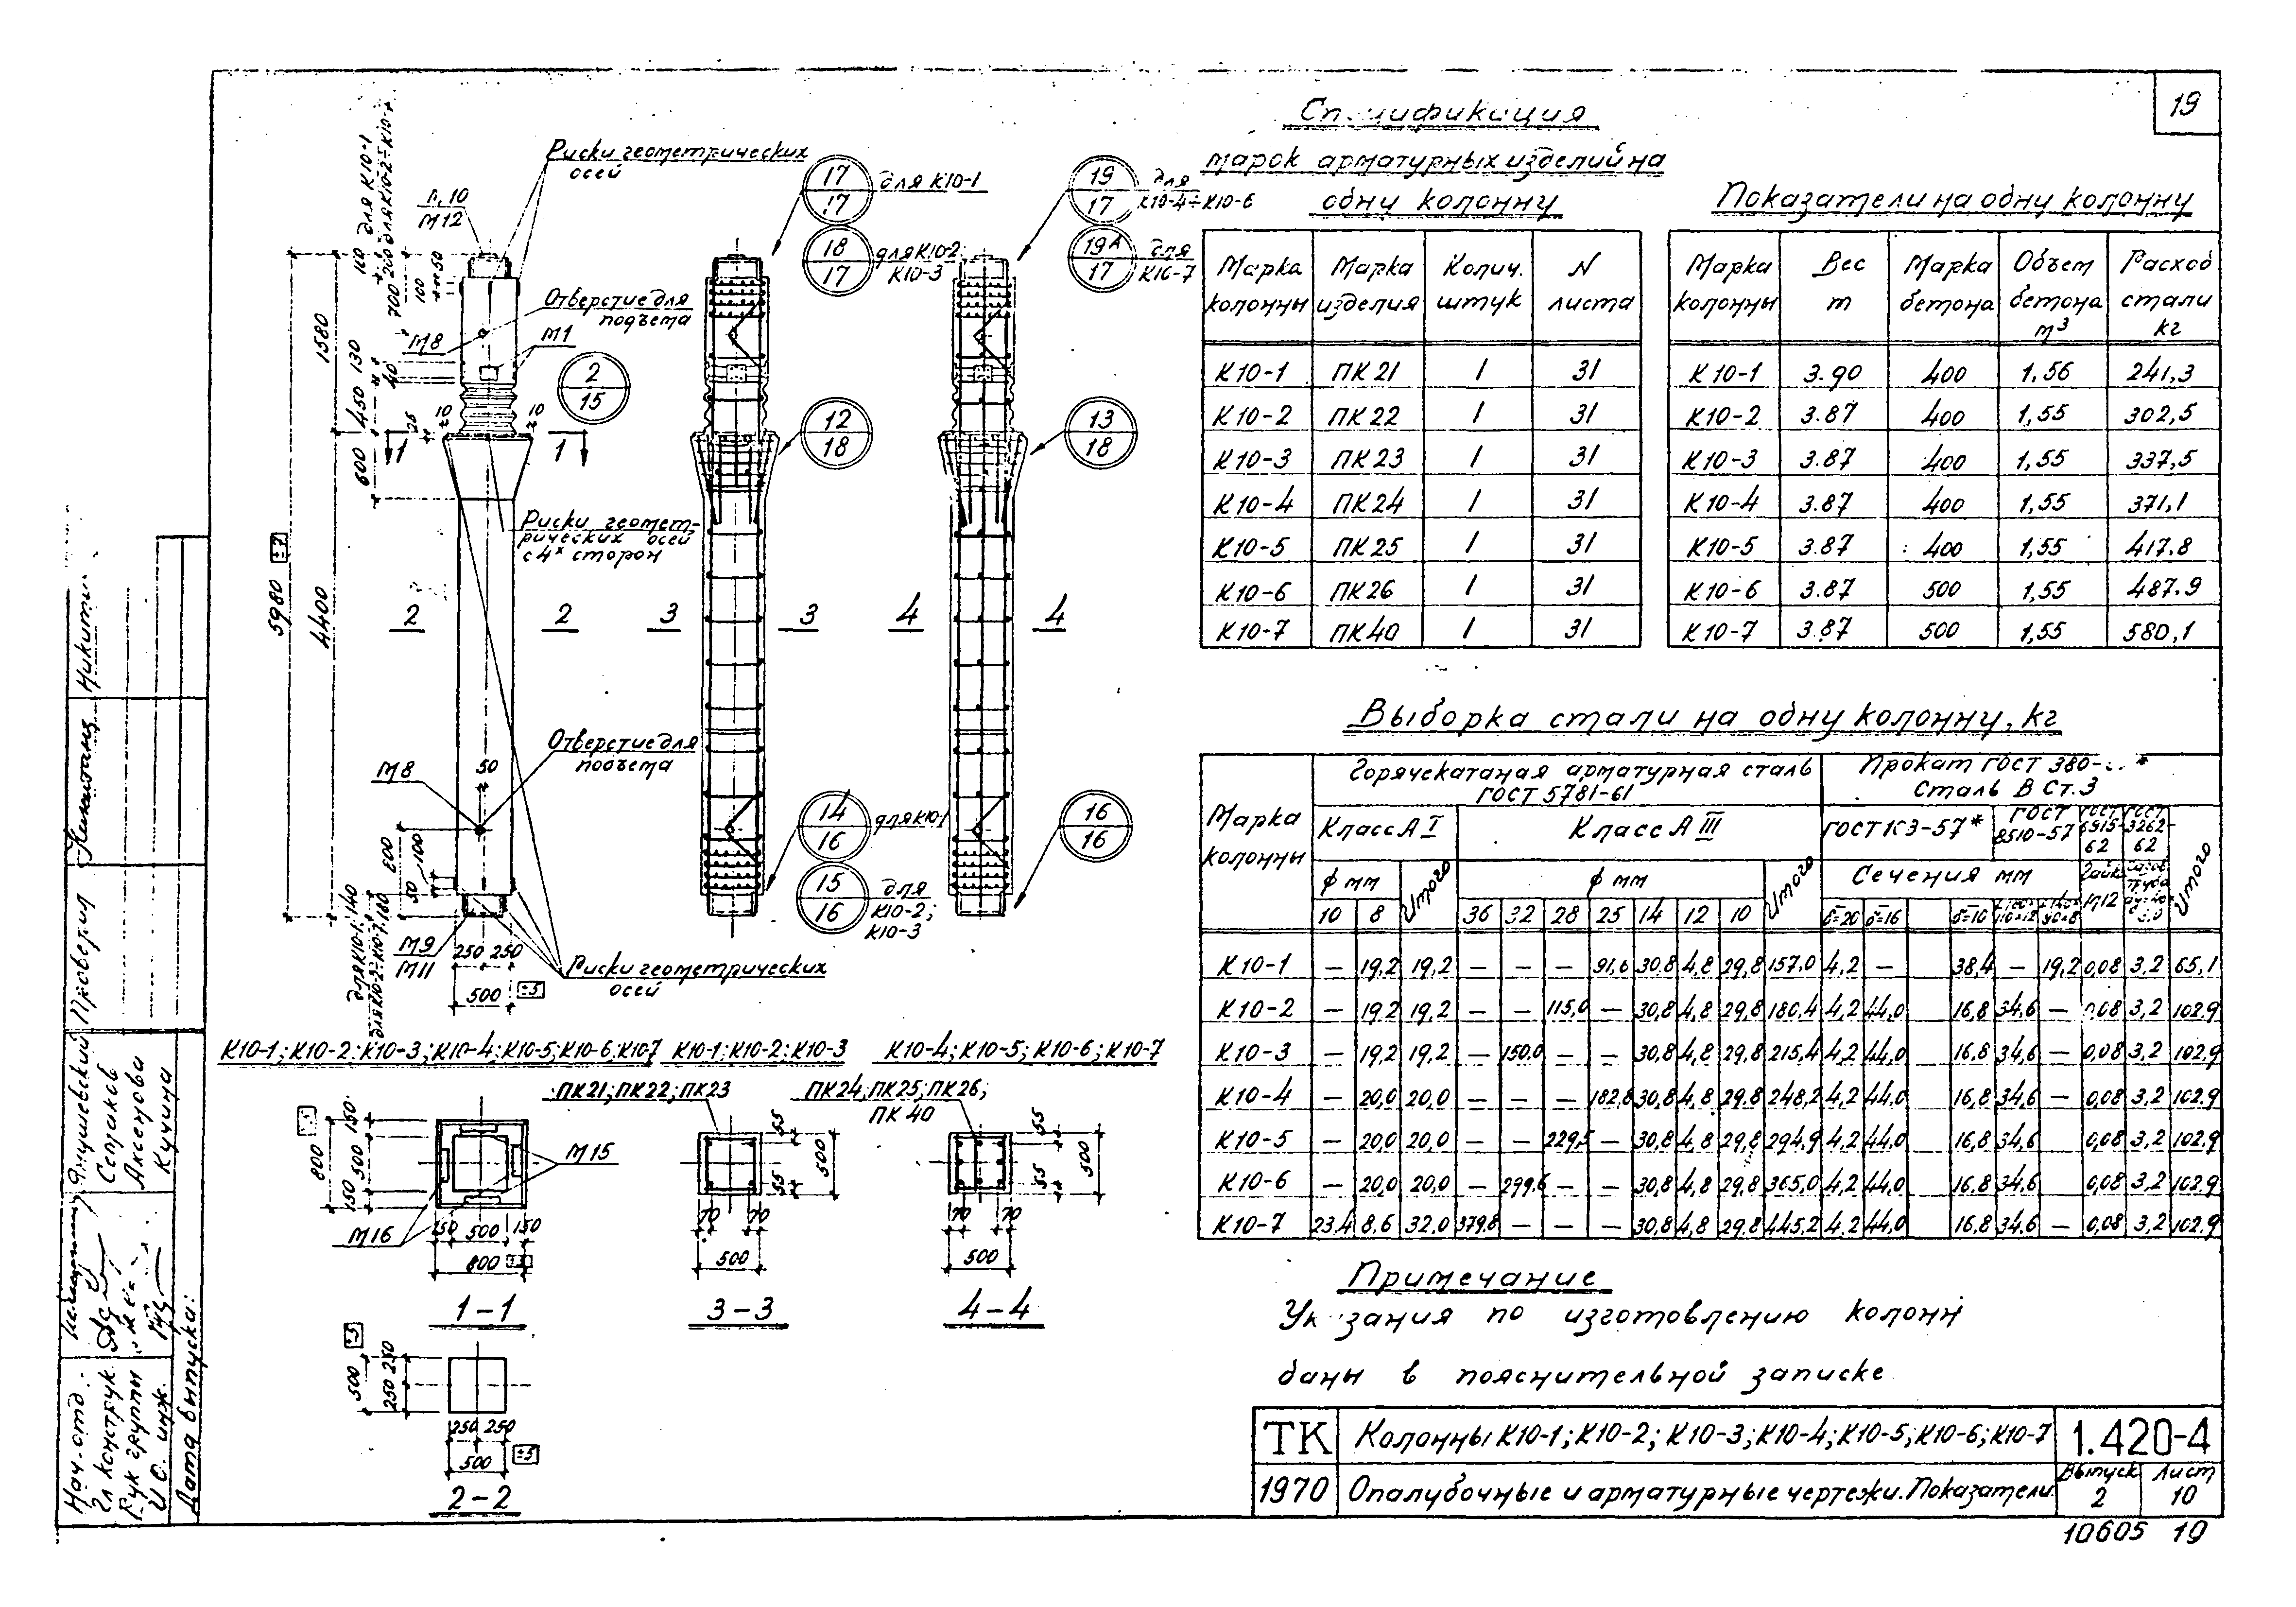 19
Риски геометрических
осей
М12
160 для К10-1
200 для К10-2÷К10-7
700
100
50
1580
130
40
450
25
10
10
600
5980
4400
М8
М1
Отверстие для
подъема
2
15
1
1
Риски геомет-
рических осей
с 4х сторон
2
2
3
3
4
4
17
17
для К10-1
18
17
для К10-2;
К10-3
19
17
для
К10-4÷К10-6
19А
17
для
К10-7
12
18
13
18
14
16
для К10-1
15
16
для
К10-2;
К10-3
16
16
М8
50
Отверстие для
подъема
100
50
для К10-1; 140
для К10-2÷К10-7; 180
М9
М11
250 250
500 ±5
Риски геометрических
осей
К10-1; К10-2; К10-3; К10-4; К10-5; К10-6; К10-7
К10-1; К10-2; К10-3
К10-4; К10-5; К10-6; К10-7
ПК21; ПК22; ПК23
ПК24, ПК25; ПК26;
ПК 40
150
500
150
800
М15
М16
150 500 150
800
1-1
55
55
500
70 70
500
3-3
55
55
500
70 70
500
4-4
500
250 250
250 250
500 ±5
2-2
марок арматурных изделий на
одну колонну
Марка колонны Марка изделия Колич. штук N листа
К10-1 ПК21 1 31
К10-2 ПК22 1 31
К10-3 ПК23 1 31
К10-4 ПК24 1 31
К10-5 ПК25 1 31
К10-6 ПК26 1 31
К10-7 ПК40 1 31
Показатели на одну колонну
Марка колонны Вес т Марка бетона Объем бетона м3 Расход стали кг
К10-1 3.90 400 1,56 241,3
К10-2 3.87 400 1,55 302,5
К10-3 3.87 400 1,55 337,5
К10-4 3.87 400 1,55 371,1
К10-5 3.87 400 1,55 417.8
К10-6 3.87 500 1,55 487.9
К10-7 3.87 500 1,55 580,1
Выборка стали на одну колонну, кг
Марка колонны
Горячекатаная арматурная сталь
ГОСТ 5781-61
Прокат ГОСТ 380-
Сталь В Ст.3
Класс А I
Класс А III
ГОСТ 103-57*
ГОСТ 8510-57
ГОСТ 5915-62
ГОСТ 3262-62
Итого
ϕ мм
Итого
ϕ мм
Итого
Сечения мм
10 8 36 32 28 25 14 12 10 δ=20 δ=16 δ=10 М12
К10-1 — 19,2 19,2 — — — 91,6 30,8 4,8 29,8 157,0 4,2 — 38,4 — 19,2 0,08 3,2 65,1
К10-2 — 19,2 19,2 — — 115,0 — 30,8 4,8 29,8 180,4 4,2 44,0 16,8 34,6 — 0,08 3,2 102,9
К10-3 — 19,2 19,2 — 150,0 — — 30,8 4,8 29,8 215,4 4,2 44,0 16,8 34,6 — 0,08 3,2 102,9
К10-4 — 20,0 20,0 — — — 182,6 30,8 4,8 29,8 248,2 4,2 44,0 16,8 34,6 — 0,08 3,2 102,9
К10-5 — 20,0 20,0 — — 229,5 — 30,8 4,8 29,8 294,9 4,2 44,0 16,8 34,6 0,08 3,2 102,9
К10-6 — 20,0 20,0 — 299,6 — — 30,8 4,8 29,8 365,0 4,2 44,0 16,8 34,6 0,08 3,2 102,9
К10-7 23,4 8,6 32,0 379,8 — — — 30,8 4,8 29,8 445,2 4,2 44,0 16,8 34,6 — 0,08 3,2 102,9
Примечание
по изготовлению колонн
даны в пояснительной записке
ТК
Колонны К10-1; К10-2; К10-3; К10-4; К10-5; К10-6; К10-7
1.420-4
1970
Опалубочные и арматурные чертежи. Показатели.
Выпуск
2
Лист
10
10605 19
Проверил
Янушевский
Аксенова
Кучина
Нач. отд.
Гл конструк
Рук группы
Дата выпуска: